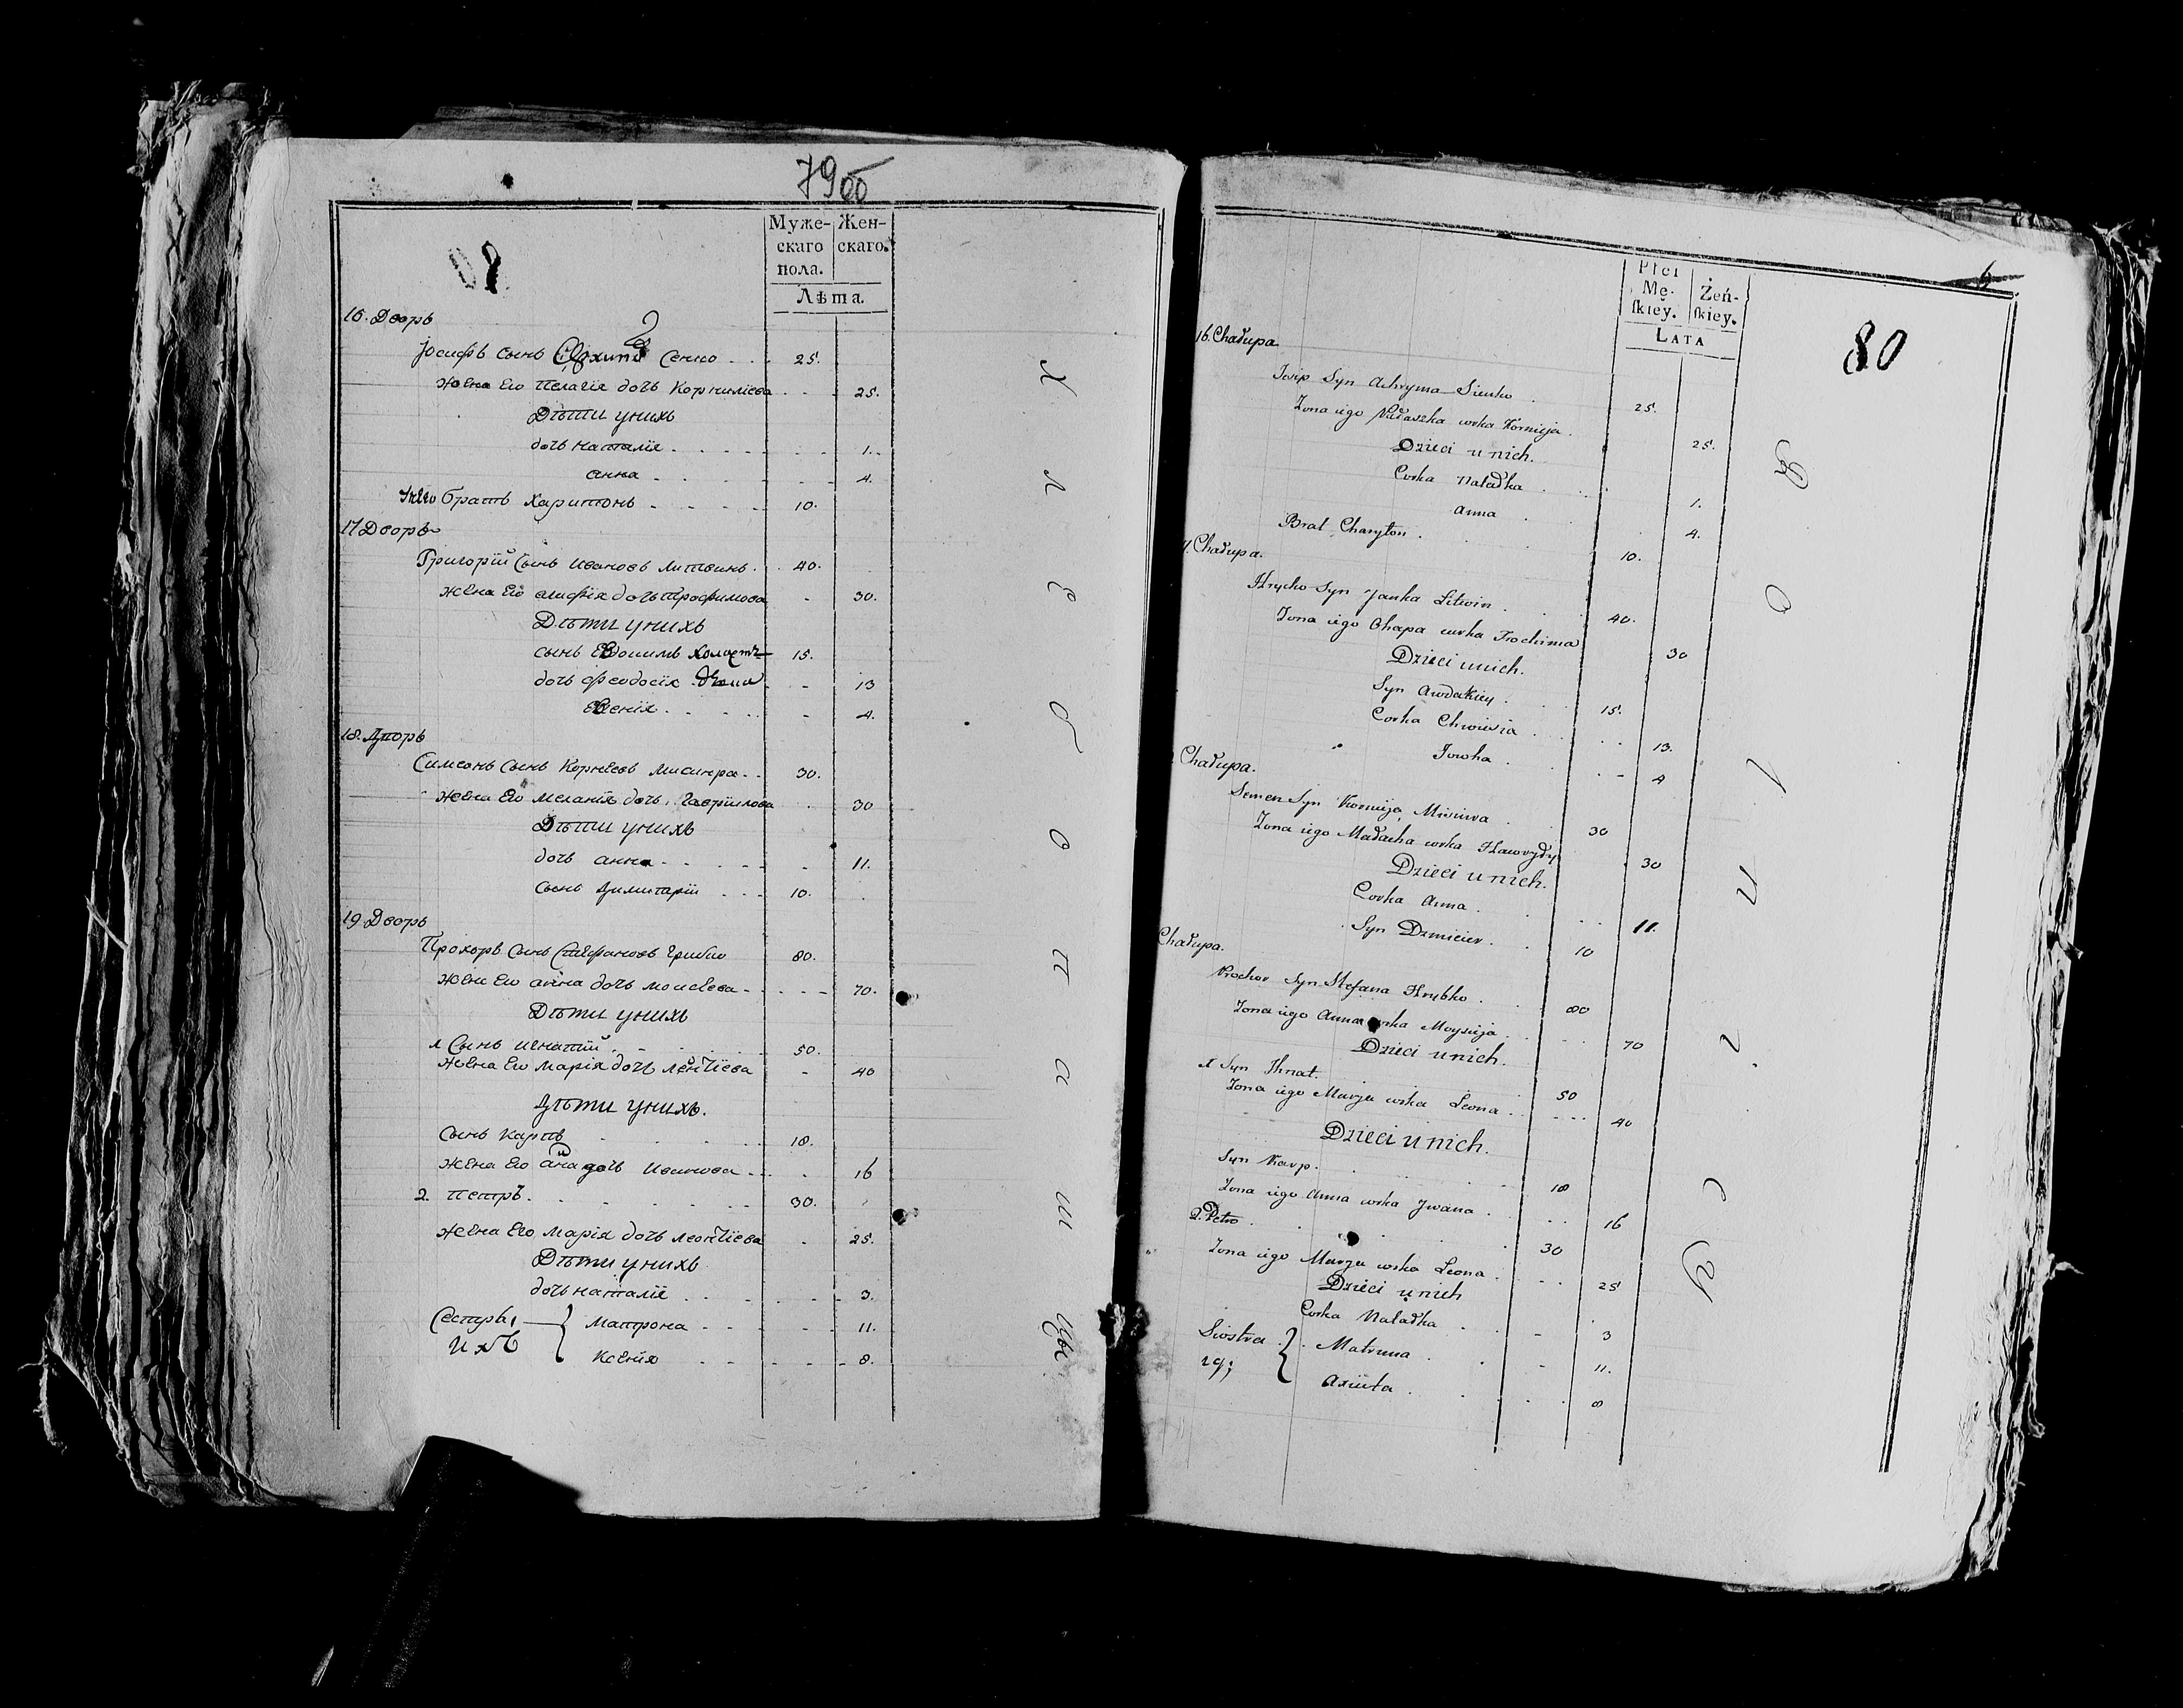 79об
Муже-
скаго
пола.
Жен-
скаго.
Лѣта.
16. Дворъ
Іосифъ сынъ Сенко - - - 25.
жена Его Пелагія дочь Корниліева - - - 25.
Дѣти унихъ
дочь наталія - - - 1.
анна - - - 4.
братъ Харитонъ - - - 10.
17 Дворъ
Григорій Сынъ Ивановъ Литвинъ - 40.
жена Его дочь Трофимова - 30.
Дѣти унихъ
сынъ Евдокимъ 15.
дочь феодосія - 13
- 4.
18. Дворъ
Симеонъ Сынъ Корнѣевъ - - 30.
жена Его меланія дочь Гавріилова - 30
Дѣти унихъ
дочь анна - - - 11.
сынъ Димитрій - - - 10.
19. Дворъ
Прохоръ Сынъ Стефановъ Грибко 80.
жена Его анна дочь моисеева - - - 70.
Дѣти унихъ
1 Сынъ игнатій - 50.
жена Его марія дочь леонтіева - 40
Дѣти унихъ.
Сынъ Карпъ - - - 18.
жена Его анна дочь Иванова - - - 16
2. петръ. - - - 30.
жена Его марія дочь леонтіева - 25.
Дѣти унихъ
дочь наталія - - - 3.
Сестры
ихъ
матрона - - - 11.
Ксенія - - - 8.
Х л е б о п а ш ц ы
Płci
Mę-
skiey.
Żeń-
skiey.
LATA
80
16. Chałupa
Josip Syn Achryma Sienko . 25.
Zona iego Pałaszka corka Kornieja . 25.
Dzieci u nich.
Corka Natałka . 1.
Anna . 4.
Brat Charyton . 10.
Chałupa.
Hrycko Syn Janka Litwin . 40.
Zona iego Chapa corka Trochima 30
Dzieci u nich.
Syn Awdakiey . 15.
Corka Chwiesia . 13.
. 4
Chałupa.
Semen Syn Kornieja . 30
Zona iego Małacha corka 30
Dzieci u nich.
Corka Anna . 11.
Syn Dzmicier . 10
Chałupa.
Prochor Syn Stefana Hrybko . 80
Zona iego Anna corka Moysieja . 70
Dzieci u nich.
1 Syn Ihnat. 50
Zona iego Marja corka Leona . 40
Dzieci u nich.
Syn Karp. 18
Zona iego Anna corka Jwana . 16
2. Petro . 30
Zona iego Marja corka Leona . 25
Dzieci u nich
Corka Natałka . 3
Siostra
ich
Matruna . 11.
Axiuta . 8
R o l n i c y